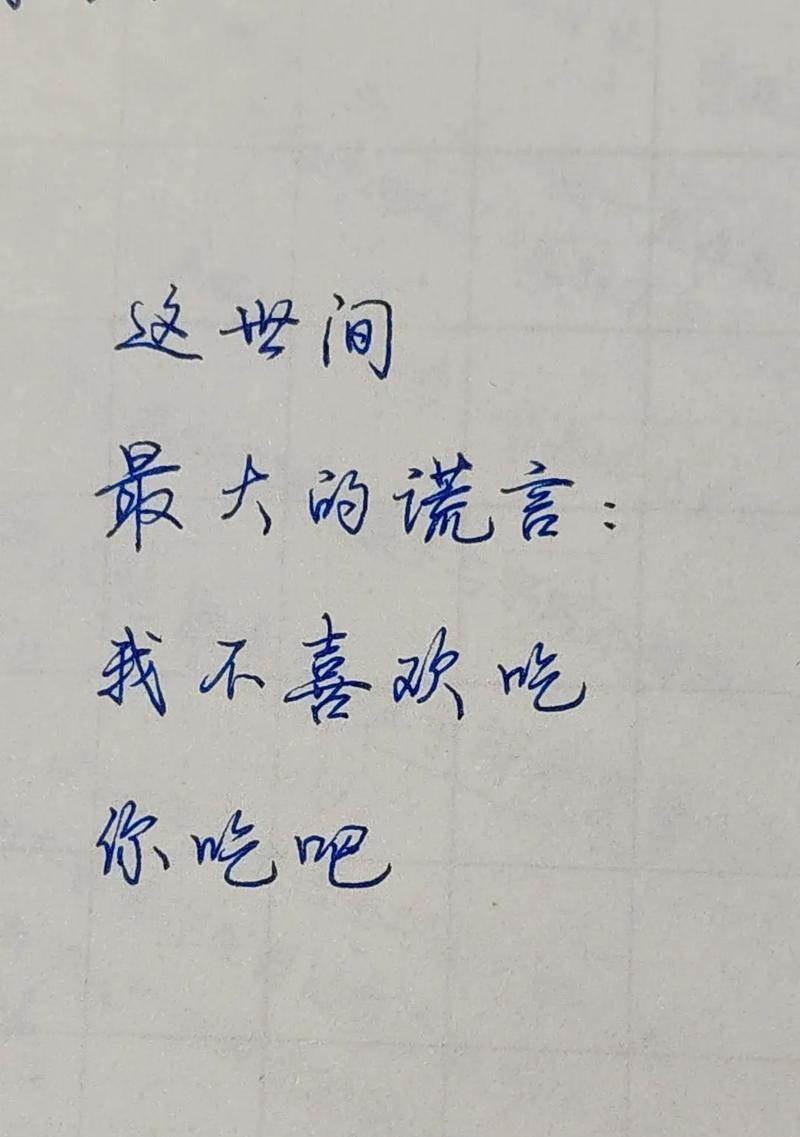 这世间
最大的谎言：
我不喜欢吃
你吃吧